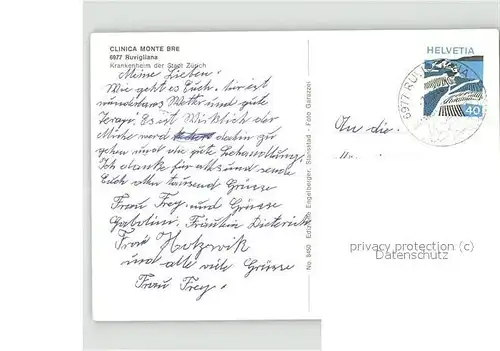 CLINICA MONTE BRE
6977 Ruvigliana
Krankenheim der Stadt Zürich
Meine Lieben!
Wie geht es Euch. hier ist
wunderbares Wetter und gute
Terapi. Es ist Wirklich der
Mühe werd dahin zu
gehen und die gute Behandlung.
Ich danke für alles und sende
Euch allen tausend Grüsse
Frau Frey. und Grüsse
Fräulein Dieterich
Frau Hotzwik
und alle viele Grüsse
Frau Frey.
No. 8450 Edition Engelberger, Stansstad - Foto Garuzzi
HELVETIA
40
6977 RUV
An die
privacy protection (c)
Datenschutz